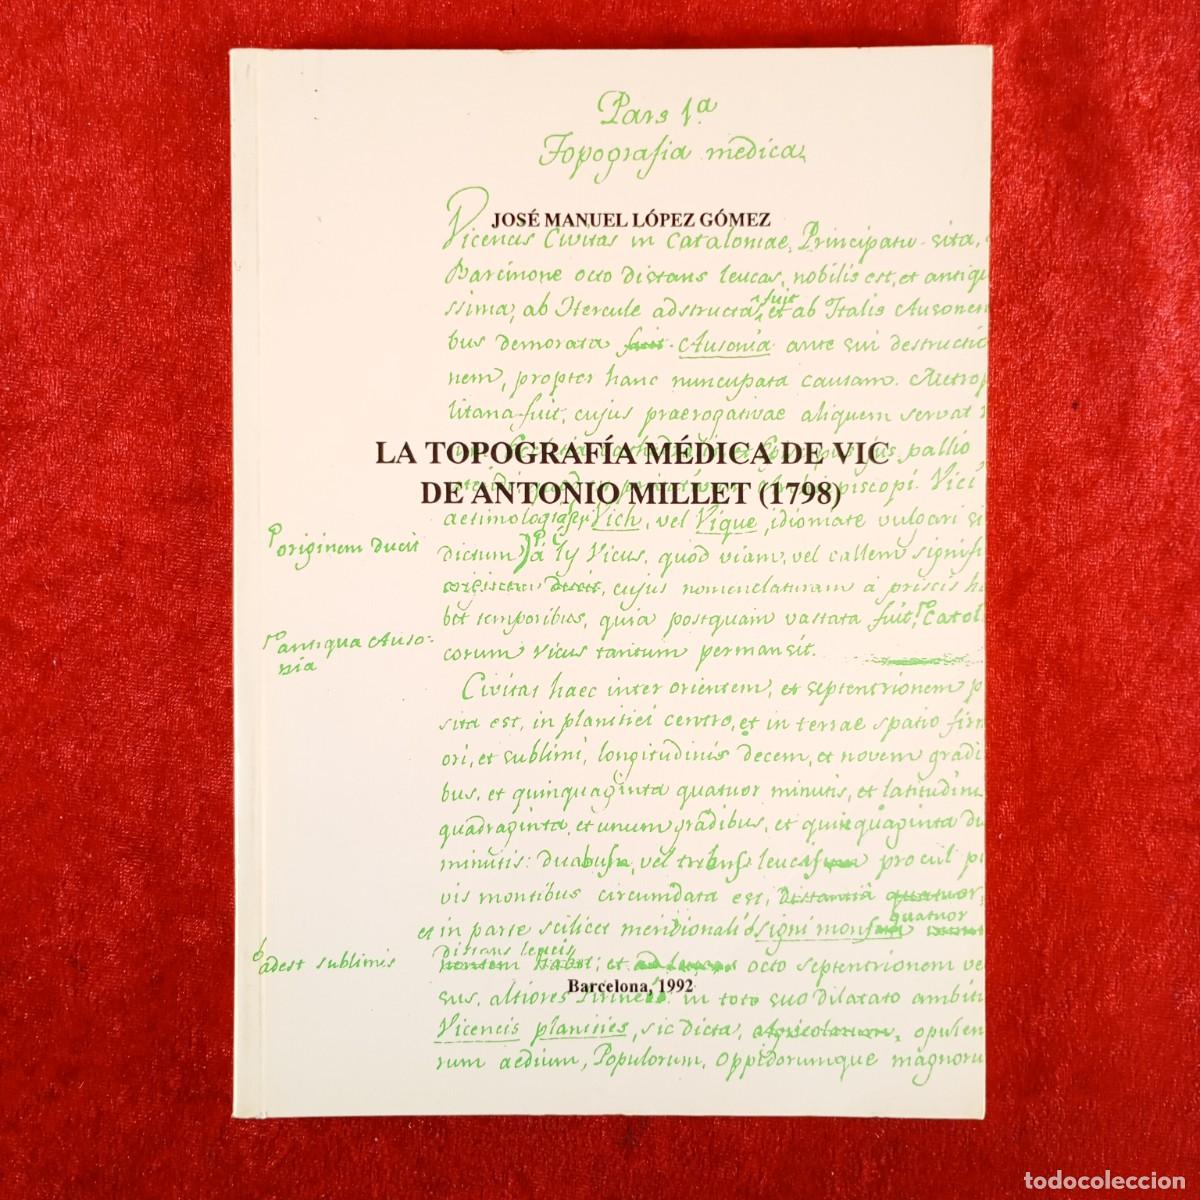 Pars 1ª
Topografia medica
JOSÉ MANUEL LÓPEZ GÓMEZ
Vicencis Civitas in Cataloniae, Principatu sita,
Barcinone octo distans leucas, nobilis est, et antiqu
ssima, ab Hercule adstructa fuit, et ab Italis Ausonen
bus demorata fuit Ausonia ante sui destructio
nem, propter hanc nuncupata causam. Metrop
litana fuit, cujus praerogativae aliquem servat
pallio
LA TOPOGRAFÍA MÉDICA DE VIC
DE ANTONIO MILLET (1798)
episcopi. Vici
aetimologia Vich, vel Vique, idiomate vulgari
originem ducit
dictum à ly Vicus, quod viam, vel callem signifi
cujus nomenclaturam à priscis h
bet temporibus, quia postquam vastata fuit, Catol
antiqua Auso-
nia
corum vicus tantum permansit.
Civitas haec inter orientem, et septentrionem p
sita est, in planitiei centro, et in terrae spatio firm
ori, et sublimi, longitudinis decem, et novem gradi
bus, et quinquaginta quatuor minutis, et latitudin
quadraginta, et unum gradibus, et quinquaginta du
minutis: duabus, vel tribus leucis procul p
vis montibus circumdata est, distantia quatuor,
quatuor
et in parte scilicet meridionali signi mons
distans leucis
adest sublimis
et octo septentrionem ve
Barcelona, 1992
sus, altiores Pirineos in toto suo dilatato ambitu
Vicencis planities, sic dicta, agricolarum, opulen
rum aedium, Populorum, oppidorumque magnoru
todocoleccion